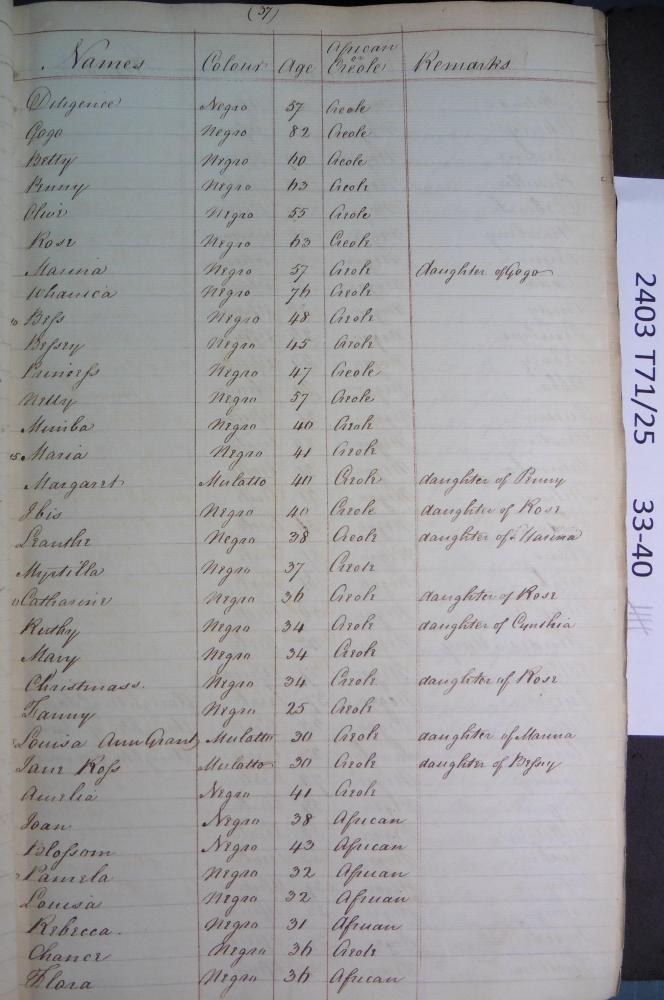 (37)
Names Colour Age African or Creole Remarks
Diligence Negro 57 Creole
Gogo Negro 82 Creole
Betty Negro 60 Creole
Penny Negro 63 Creole
Olive Negro 55 Creole
Rose Negro 63 Creole
Marina Negro 57 Creole daughter of Gogo
Whanica Negro 76 Creole
Bess Negro 48 Creole
Bessey Negro 45 Creole
Princess Negro 47 Creole
Netty Negro 57 Creole
Mimba Negro 40 Creole
Maria Negro 41 Creole
Margaret Mulatto 40 Creole daughter of Penny
Ibis Negro 40 Creole daughter of Rose
Leanthe Negro 38 Creole daughter of Marina
Myrtilla Negro 37 Creole
Catharine Negro 36 Creole daughter of Rose
Ruthy Negro 34 Creole daughter of Cynthia
Mary Negro 34 Creole
Christmass. Negro 34 Creole daughter of Rose
Fanny Negro 25 Creole
Louisa Ann Grant Mulatto 30 Creole daughter of Marina
Jane Ross Mulatto 30 Creole daughter of Bessy
Aurelia Negro 41 Creole
Joan Negro 38 African
Blossom Negro 43 African
Pamela Negro 32 African
Louisa Negro 32 African
Rebecca. Negro 31 African
Chance Negro 36 Creole
Flora Negro 36 African
2403 T71/25 33-40